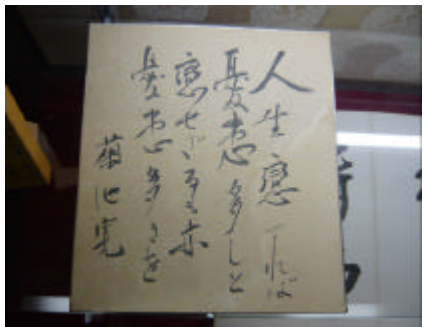 人生戀すれば
憂患多しと
恋せざるも亦
憂患多きを
菊池寛